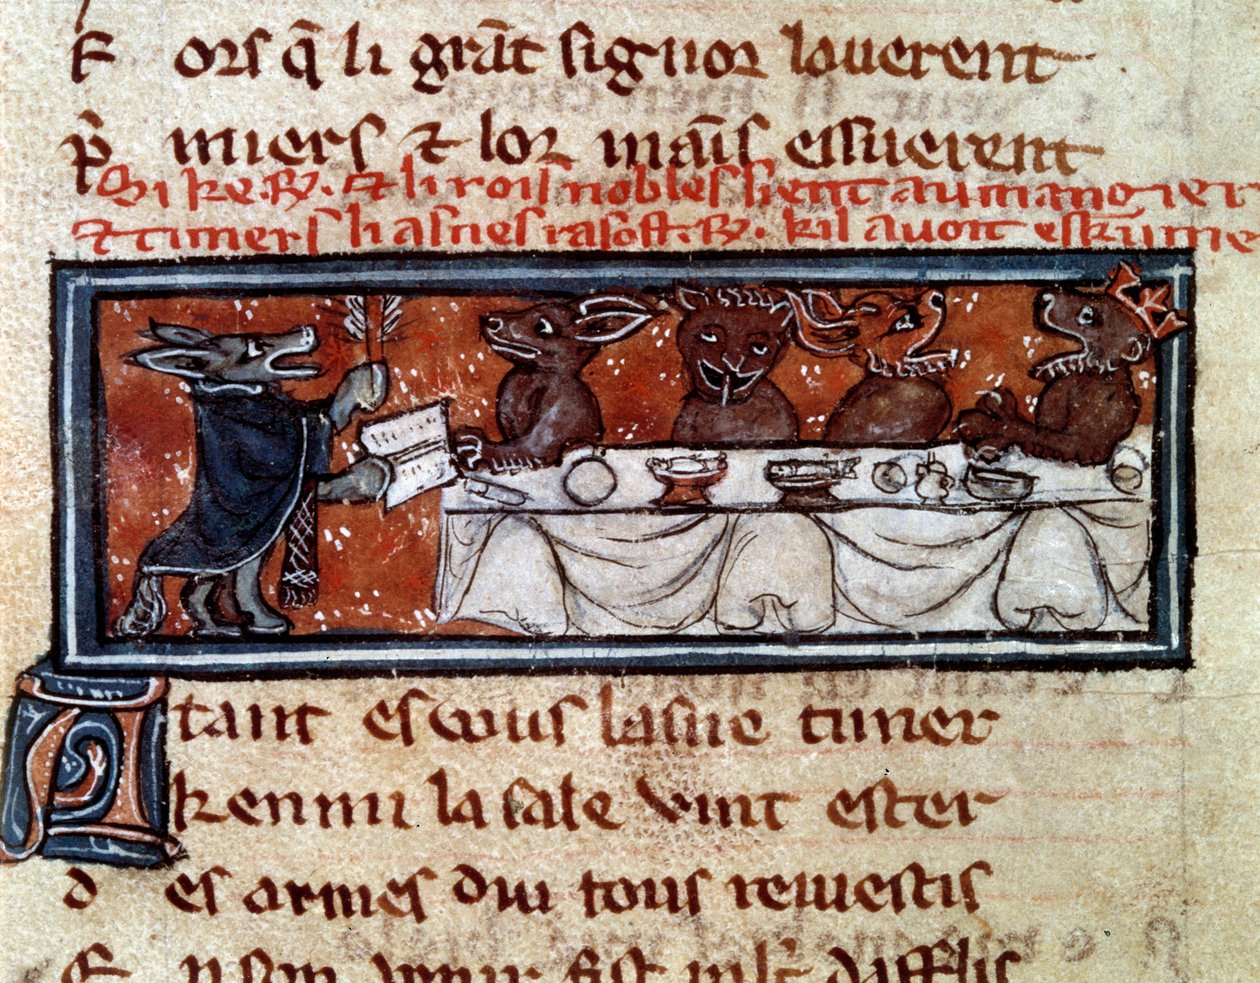 F ors q̄ li grāt signor lauerent
P̄ miers ⁊ lor maīs essuierent
Si ke .R. ⁊ li rois nobles sient au mangier
⁊ timers li asnes rasost .R. kil auoit
A tant es wous lasne timer
k enmi la sale vint ester
d es armes diu tous reuestis